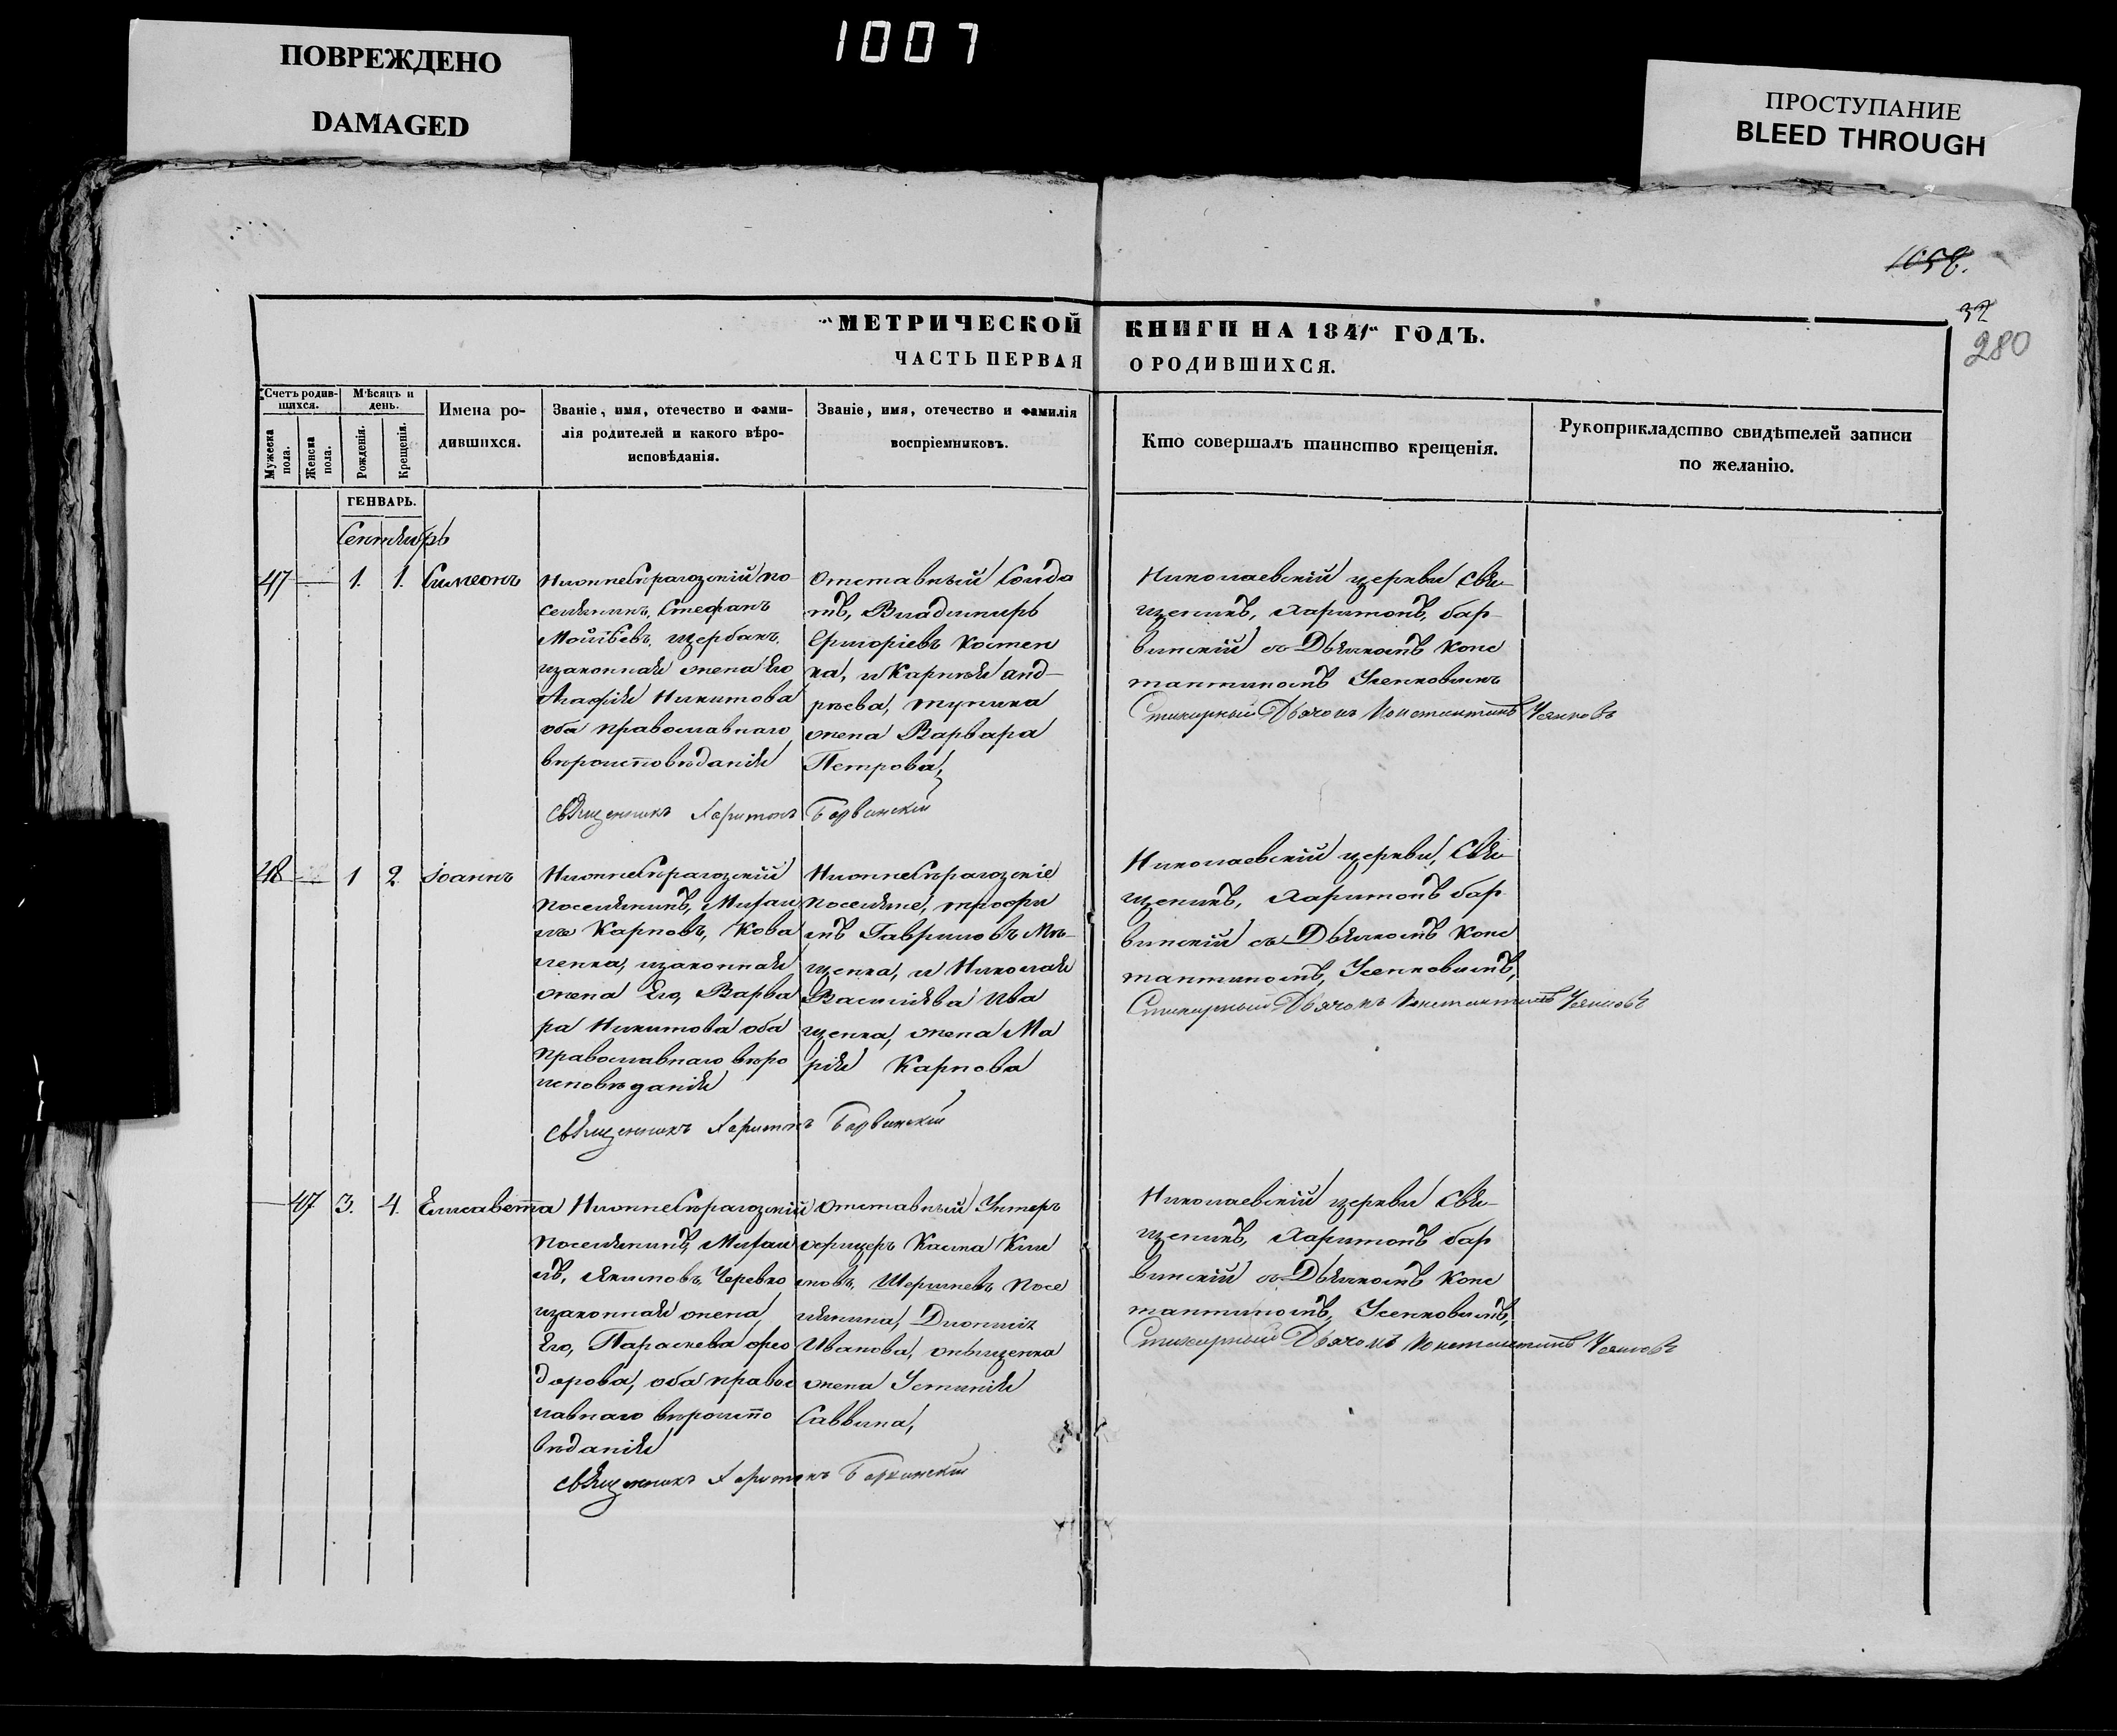 1007
ПОВРЕЖДЕНО
DAMAGED
ПРОСТУПАНИЕ
BLEED THROUGH
1058.
37
280
МЕТРИЧЕСКОЙ КНИГИ НА 1841 ГОДЪ.
ЧАСТЬ ПЕРВАЯ О РОДИВШИХСЯ.
Счетъ родив-
шихся.
Мужеска
пола.
Женска
пола.
Мѣсяцъ и
день.
Рожденія.
Крещенія.
Имена ро-
дившихся.
Званіе, имя, отечество и фами-
лія родителей и какого вѣро-
исповѣданія.
Званіе, имя, отечество и фамилія
воспріемниковъ.
Кто совершалъ таинство крещенія.
Рукоприкладство свидѣтелей записи
по желанію.
ГЕНВАРЬ.
Сентябрь
47 — 1. 1. Симеонъ
Нижнесѣрагозскій по-
селянинъ, Стефанъ
Мойсѣевъ, щербакъ,
изаконная жена Его
Агафія Никитова
оба православнаго
вѣроисповѣданія
Отставный Солда
тъ, Владимиръ
Григоріевъ Костен
ка, и Карнѣя анд-
рѣева, тупика
жена Варвара
Петрова,
Николаевскій церкви Свя-
щеникъ, Харитонъ, бар-
винскій съ Дьякомъ Конс
тантиномъ Усенковимъ
Стихарный Дьячокъ Константинъ Усенковъ
священникъ Харитонъ Барвинскій
48 — 1 2 іоаннъ
Нижнесѣрагозскій
поселянинъ, Михаи
лъ Карповъ, Кова
ленка, изаконная
жена Его, Варва
ра Никитова оба
православнаго вѣро
исповѣданія
Нижнесѣрагозскіе
поселяне, трофи
мъ Гавриловъ Мѣ-
щенка, и Николая
Василіева Ива
щенка, жена Ма
рія Карпова
Николаевскій церкви, Свя-
щеникъ, Харитонъ бар
винскій съ Дьякомъ Конс
тантиномъ, Усенковимъ,
Стихарный Дьячокъ Константинъ Усенковъ
священникъ Харитонъ Барвинскій
— 47 3. 4. Елисавета
Нижнесѣрагозскій
поселянинъ, Михаи
лъ, Якимовъ, Черевко
изаконная жена,
Его, Параскева фео
дорова, оба правос
лавнаго вѣроиспо
вѣданія
Отставный Унтеръ
офрицеръ Касма Кли
мовъ, посе
лянина, Дионисія
Иванова,
жена Устинія
Саввина,
Николаевскій церкви Свя-
щеникъ, Харитонъ бар
винскій съ Дьякомъ Конс
тантиномъ, Усенковимъ,
Стихарный Дьячокъ Константинъ Усенковъ
священникъ Харитонъ Барвинскій